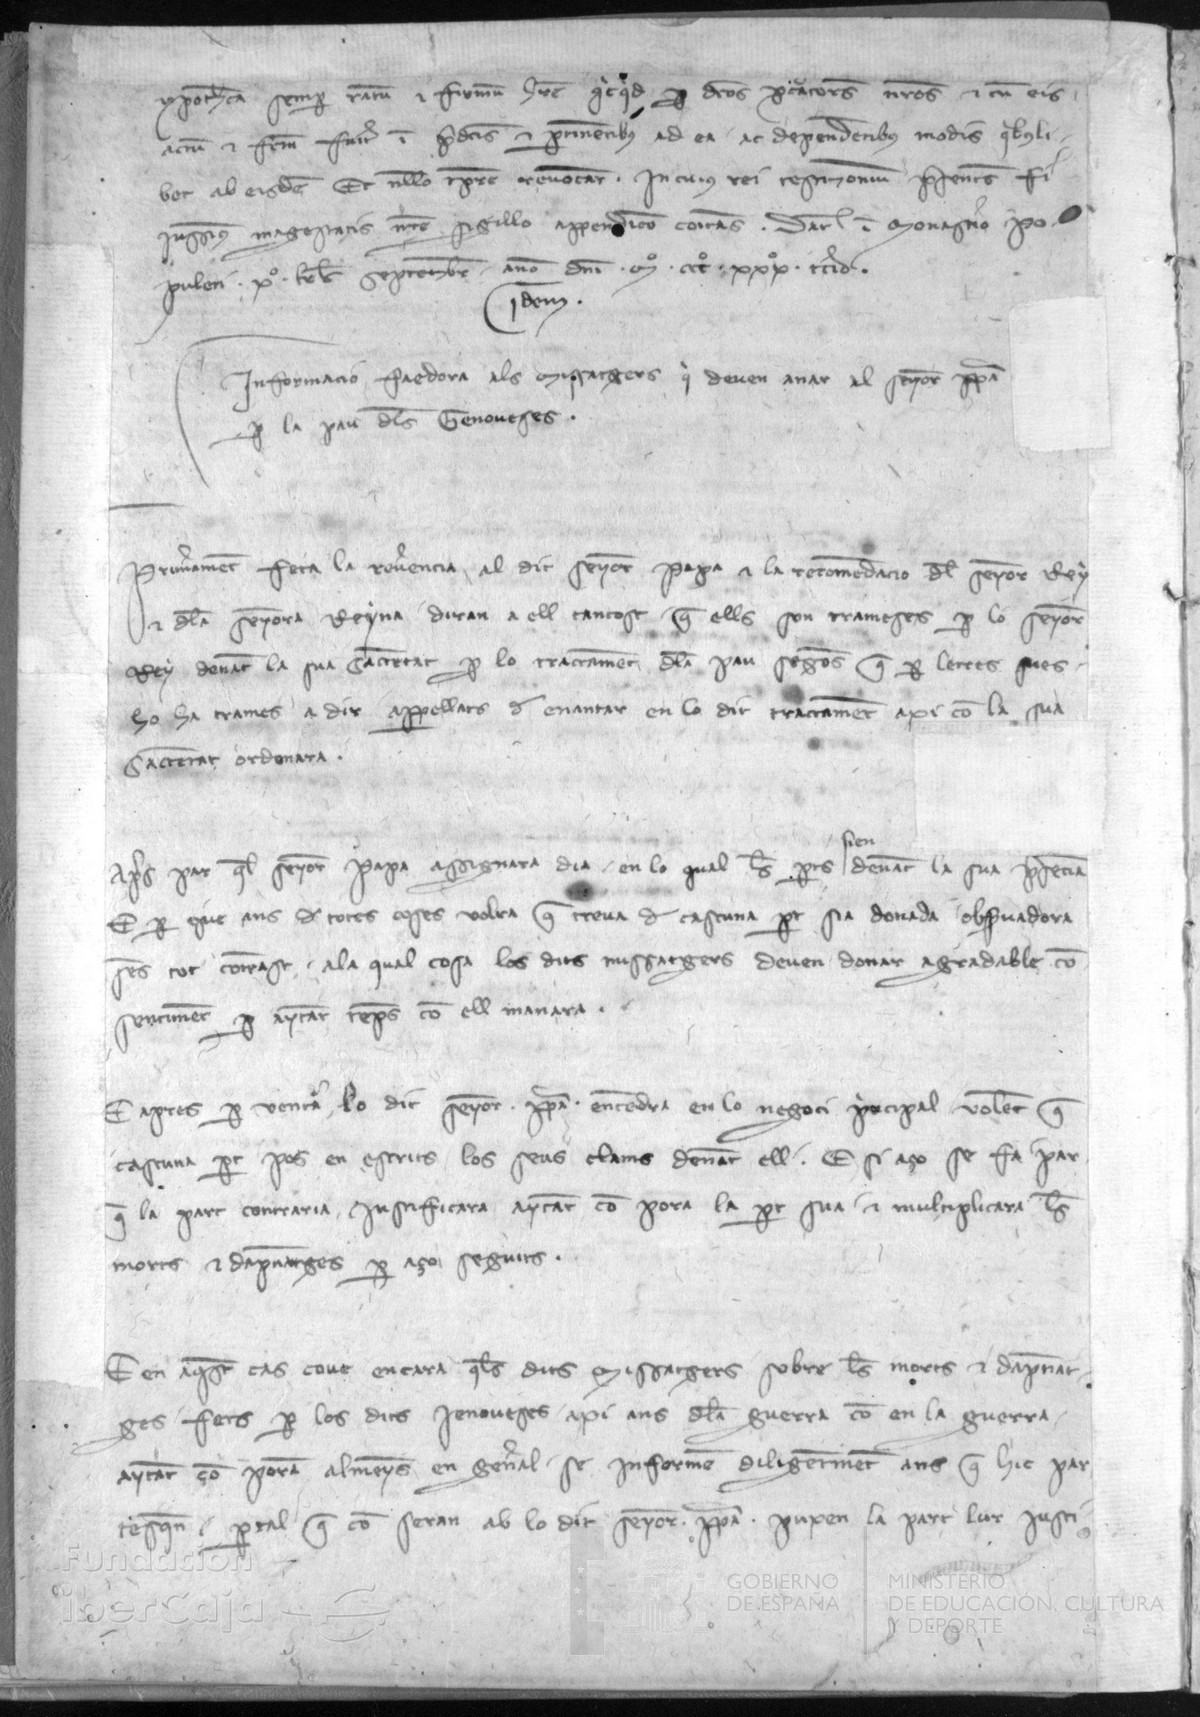 ypotheca semp ratu & firmu hre qicqid p dcos pcatores nros & cu eis
actu & frm fuit i pdcis & ptinetibus ad ea ac dependetibus modis qbusli
bet ab eisde Et nllo tpre revocar . In cuius rei testimonium psentes fi
jussim magestatis nre sigillo appendico coitas . Dat i Monastio Po
puleti . xº . kls Septembr ano dni . Mº . cccº . xxxº . tcio .
Idem .
Informacio faedora als Missatgers q deven anar al senyor ppa
p la pau dls Genoveses .
Primament feta la revencia al dit senyor Papa & la recomedacio dl senyor Rey
& dla senyora Reyna diran a ell tantost q ells son trameses p lo senyor
Rey denat la sua Sactetat p lo tractament dla pau segons q p letres sues
ho ha trames a dir appellats d enantar en lo dit tractament axi co la sua
Sactetat ordonara .
Aps par ql senyor Papa assignara dia en lo qual ls pts sien denat la sua psecia
E p que ans d totes coses volra q treva d cascuna pt sia donada observadora
ses tot contrast . a la qual cosa los dits missatgers deven donar agradable co
sentiment p aytat temps co ell manara .
E apres p ventura lo dit senyor . ppa . entendra en lo negoci pncipal volet q
cascuna pt pos en escrits los seus clams denat ell . E si aço se fa par
q la part contraria justificara aytat co pora la pt sua & multiplicara ls
morts & dapnatges p aço seguits .
E en aqst cas cove encara qls dits Missatgers sobre ls morts & dapnat
ges fets p los dits Jenoveses axi ans dla guerra co en la guerra
aytat co pora almenys en genal se informe diligetment ans q hic par
tesquen . ptal q co seran ab lo dit senyor . ppa . puxen la part lur justi
Fundación
iberCaja
GOBIERNO
DE ESPAÑA
MINISTERIO
DE EDUCACIÓN, CULTURA
Y DEPORTE